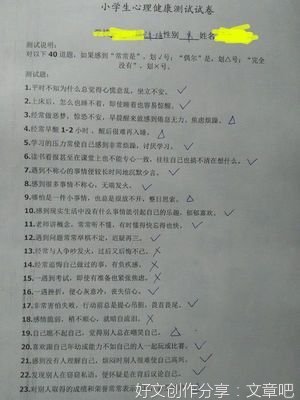 小学生心理健康测试试卷
性别 姓名
测试说明:
对以下 40 道题, 如果感到“常常是”, 划√号; “偶尔”是, 划△号; “完全
没有”, 划×号。
测试题:
1.平时不知为什么总觉得心慌意乱, 坐立不安。 √
2.上床后, 怎么也睡不着, 即使睡着也容易惊醒。 √
3.经常做恶梦, 惊恐不安, 早晨醒来就感到倦怠无力、焦虑烦躁。 △
4.经常早醒 1-2 小时, 醒后很难再入睡。 △
5.学习的压力常使自己感到非常烦躁, 讨厌学习。 √
6.读书看报甚至在课堂上也不能专心一致, 往往自己也搞不清在想什么。 √
7.遇到不称心的事情便较长时间地沉默少言。 √
8.感到很多事情不称心, 无端发火。 √
9.哪怕是一件小事情, 也总是很放不开, 整日思索。 △
10.感到现实生活中没有什么事情能引起自己的乐趣, 郁郁寡欢。 √
11.老师讲概念, 常常听不懂, 有时懂得快忘得也快。 √
12.遇到问题常常举棋不定, 迟疑再三。 √
13.经常与人争吵发火, 过后又后悔不已。 ×
14.经常追悔自己做过的事, 有负疚感。 ×
15.一遇到考试, 即使有准备也紧张焦虑。 ×
16.一遇挫折, 便心灰意冷, 丧失信心。 √
17.非常害怕失败, 行动前总是提心吊胆, 畏首畏尾。 √
18.感情脆弱, 稍不顺心, 就暗自流泪。 ×
19.自己瞧不起自己, 觉得别人总在嘲笑自己。 △
20.喜欢跟自己年幼或能力不如自己的人一起玩或比赛。 √
21.感到没有人理解自己, 烦闷时别人很难使自己高兴。 √
22.发现别人在窃窃私语, 便怀疑是在背后议论自己。 √
23.对别人取得的成绩和荣誉常常表示
好文创作分享：文章吧